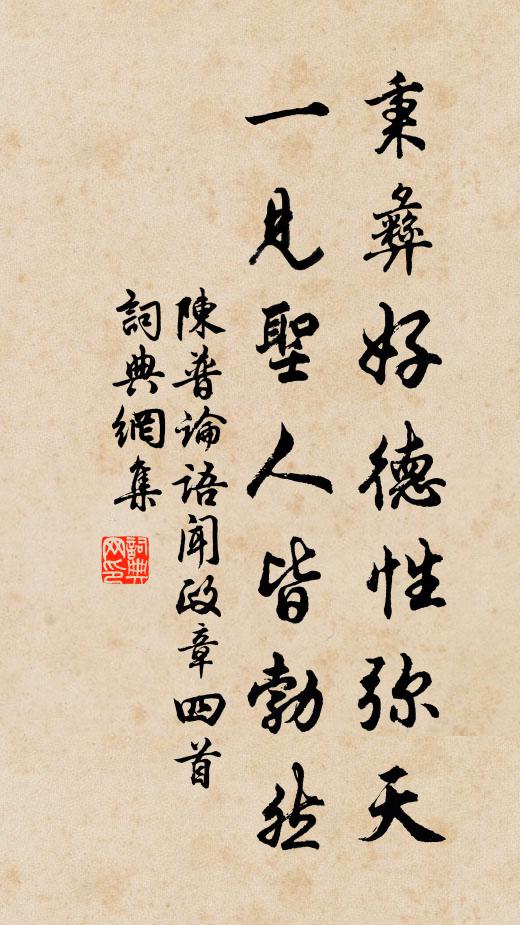 秉彝好德性弥天
一見聖人皆勃然
陳普論語聞政章四首
詞典網集
詞典网印